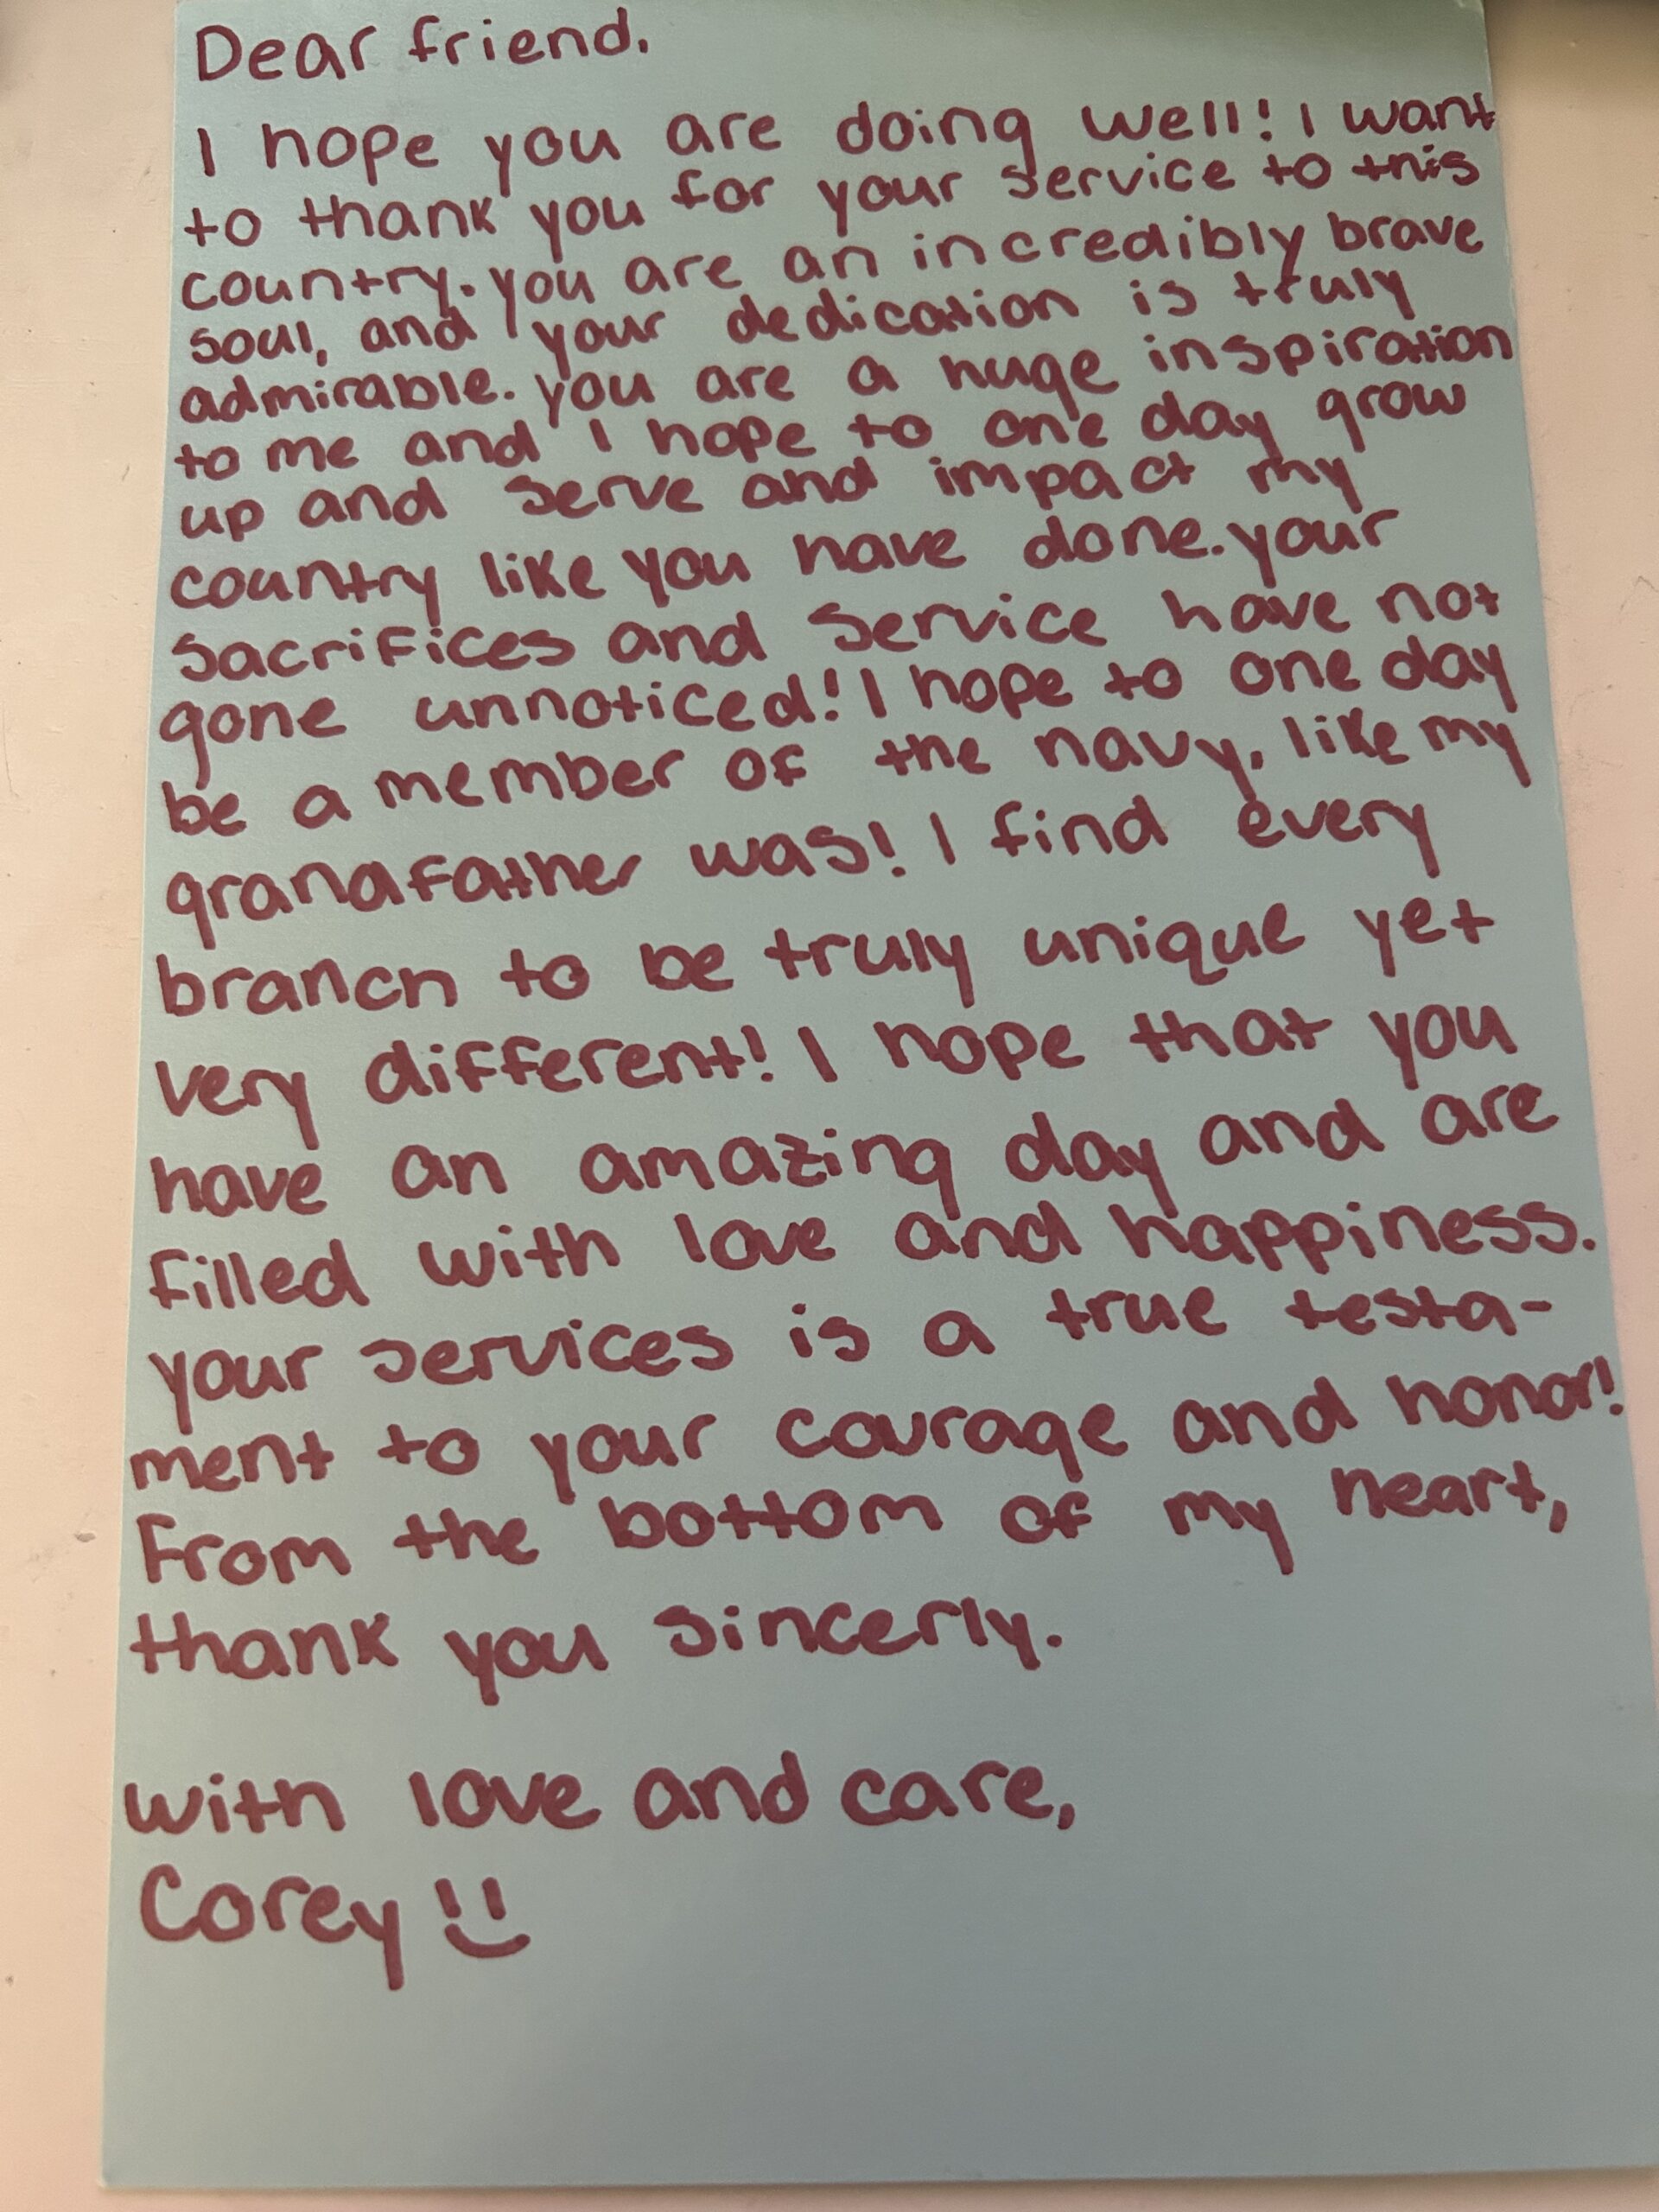 Dear friend,
I hope you are doing well! I want
to thank you for your service to this
country. you are an incredibly brave
soul, and your dedication is truly
admirable. you are a huge inspiration
to me and I hope to one day grow
up and serve and impact my
country like you have done. your
sacrifices and service have not
gone unnoticed! I hope to one day
be a member of the navy, like my
grandfather was! I find every
branch to be truly unique yet
very different! I hope that you
have an amazing day and are
filled with love and happiness.
your services is a true testa-
ment to your courage and honor!
From the bottom of my heart,
thank you sincerly.
with love and care,
Corey :)